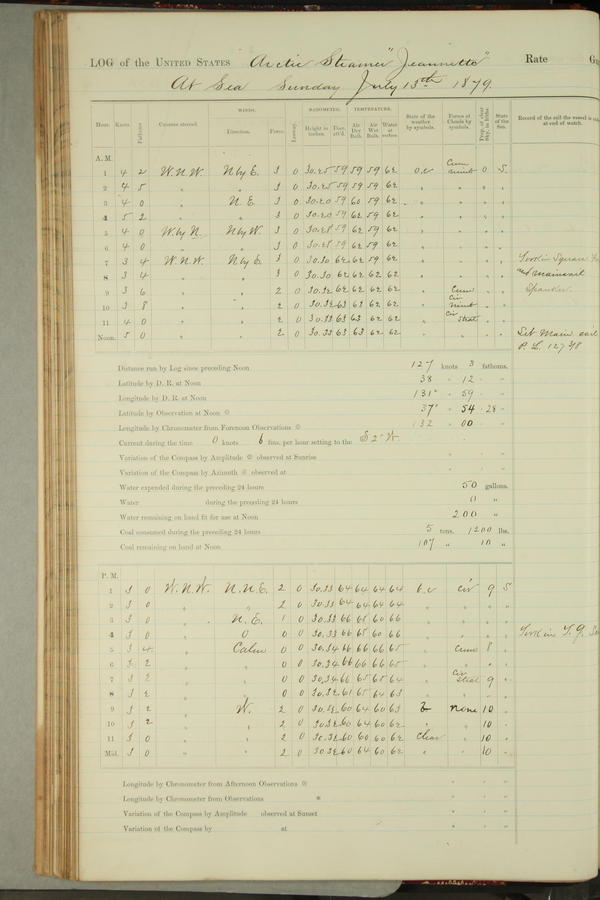 LOG of the UNITED STATES Arctic Steamer "Jeannette" Rate
At Sea Sunday July 13th 1879.
Hour. Knots. Fathoms. Courses steered. WINDS. Direction. Force. Leeway. BAROMETER. Height in inches. Ther. att'd. TEMPERATURE. Air Dry Bulb. Air Wet Bulb. Water at surface. State of the weather by symbols. Forms of Clouds by symbols. Prop. of clear sky, in 10ths. State of the Sea. Record of the sail the vessel is under at end of watch.
A. M.
1 4 2 W.N.W. N by E. 3 0 30.25 59 59 59 62 o.c Cum nimb 0 S.
2 4 5 " " 3 0 30.25 59 59 59 62 " " " "
3 4 0 " N E. 3 0 30.20 59 60 59 62 " " " "
4 5 2 " " 3 0 30.20 59 62 59 62 " " " "
5 4 0 W by N. N by W 3 0 30.28 59 62 59 62 " " " "
6 4 0 " " 3 0 30.28 59 62 59 62 " " " "
7 3 4 W.N.W. N by E. 3 0 30.30 62 62 59 62 " " " " Took in Square
8 3 4 " " 3 0 30.30 62 62 62 62 " " " " and mainsail
9 3 6 " " 2 0 30.32 62 62 62 62 " Cum Cir " " Spanker.
10 3 8 " " 2 0 30.32 63 63 62 62 " nimb " "
11 4 0 " " 2 0 30.33 63 63 62 62 " Cir Strat " "
Noon. 5 0 " " 2 0 30.33 63 63 62 62 " " " " Set Main sail
P. L. 127 3/8
Distance run by Log since preceding Noon 127 knots 3 fathoms.
Latitude by D. R. at Noon 38 ° 12
Longitude by D. R. at Noon 131° 59
Latitude by Observation at Noon 37° 54 28
Longitude by Chronometer from Forenoon Observations 132 ° 00
Current during the time 0 knots 6 fms. per hour setting to the S 2° W.
Variation of the Compass by Amplitude observed at Sunrise
Variation of the Compass by Azimuth observed at
Water expended during the preceding 24 hours 50 gallons.
Water during the preceding 24 hours 0 "
Water remaining on hand fit for use at Noon 200 "
Coal consumed during the preceding 24 hours 5 tons. 1200 lbs.
Coal remaining on hand at Noon 107 " 10 "
P. M.
1 3 0 W.N.W. N.N.E. 2 0 30.33 64 64 64 64 b.c cir 9 S
2 3 0 " " 2 0 30.33 64 64 64 64 " " " "
3 3 0 " N.E. 1 0 30.33 66 65 60 66 " " " "
4 3 0 " 0 0 0 30.33 66 65 60 66 " " " "
5 3 4 " Calm 0 0 30.34 66 66 66 65 " Cum 8 "
6 3 2 " " 0 0 30.34 66 66 66 65 " " " "
7 3 2 " " 0 0 30.34 66 65 65 64 " Cir Strat 9 "
8 3 2 " " 0 0 30.32 61 65 64 63 " " " "
9 3 2 " W. 2 0 30.32 60 64 60 63 b None 10 "
10 3 2 " " 2 0 30.32 60 64 60 62 " " 10 "
11 3 0 " " 2 0 30.32 60 60 60 62 Clear " 10 "
Mid. 3 0 " " 2 0 30.32 60 64 60 62 " " 10 "
Longitude by Chronometer from Afternoon Observations
Longitude by Chronometer from Observations *
Variation of the Compass by Amplitude observed at Sunset
Variation of the Compass by at